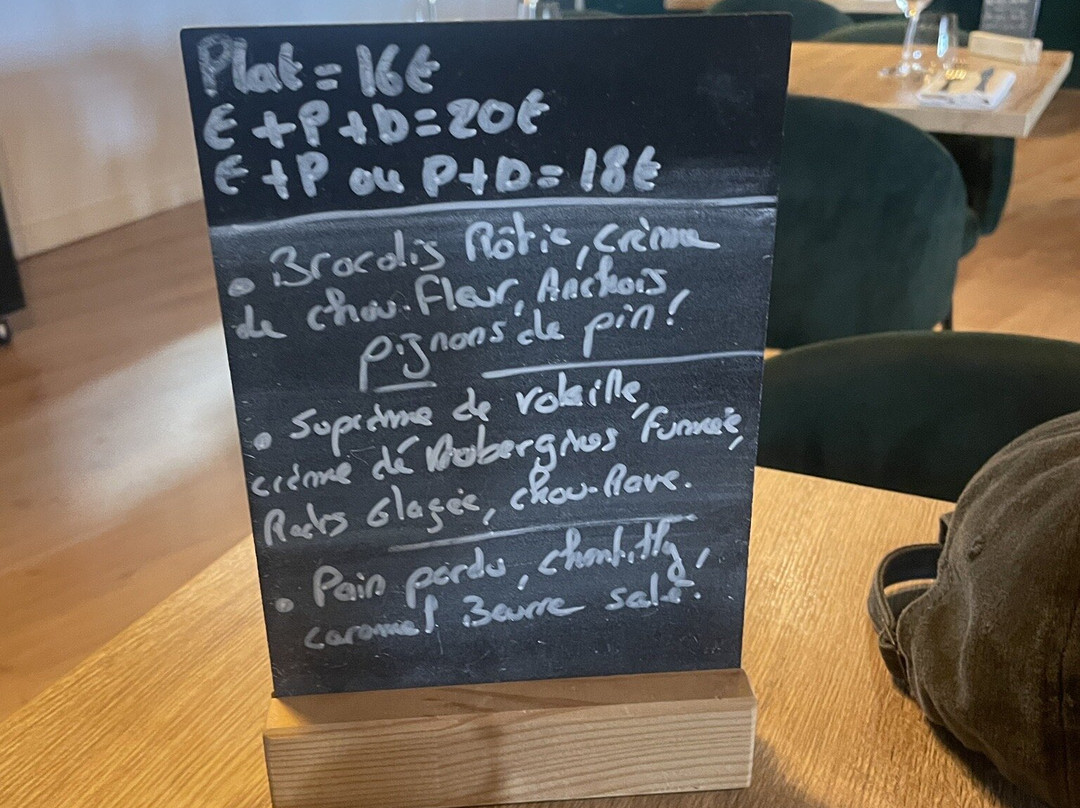 Plat = 16€
E + P + D = 20€
E + P ou P + D = 18€
• Brocolis Rôtie, crème
de chou-Fleur, Anchois,
pignons de pin!
• Suprême de volaille,
crème dé Aubergines fumée,
Radis Glagée, chou-Rave.
• Pain perdu, chantilly,
caramel Beurre salé.